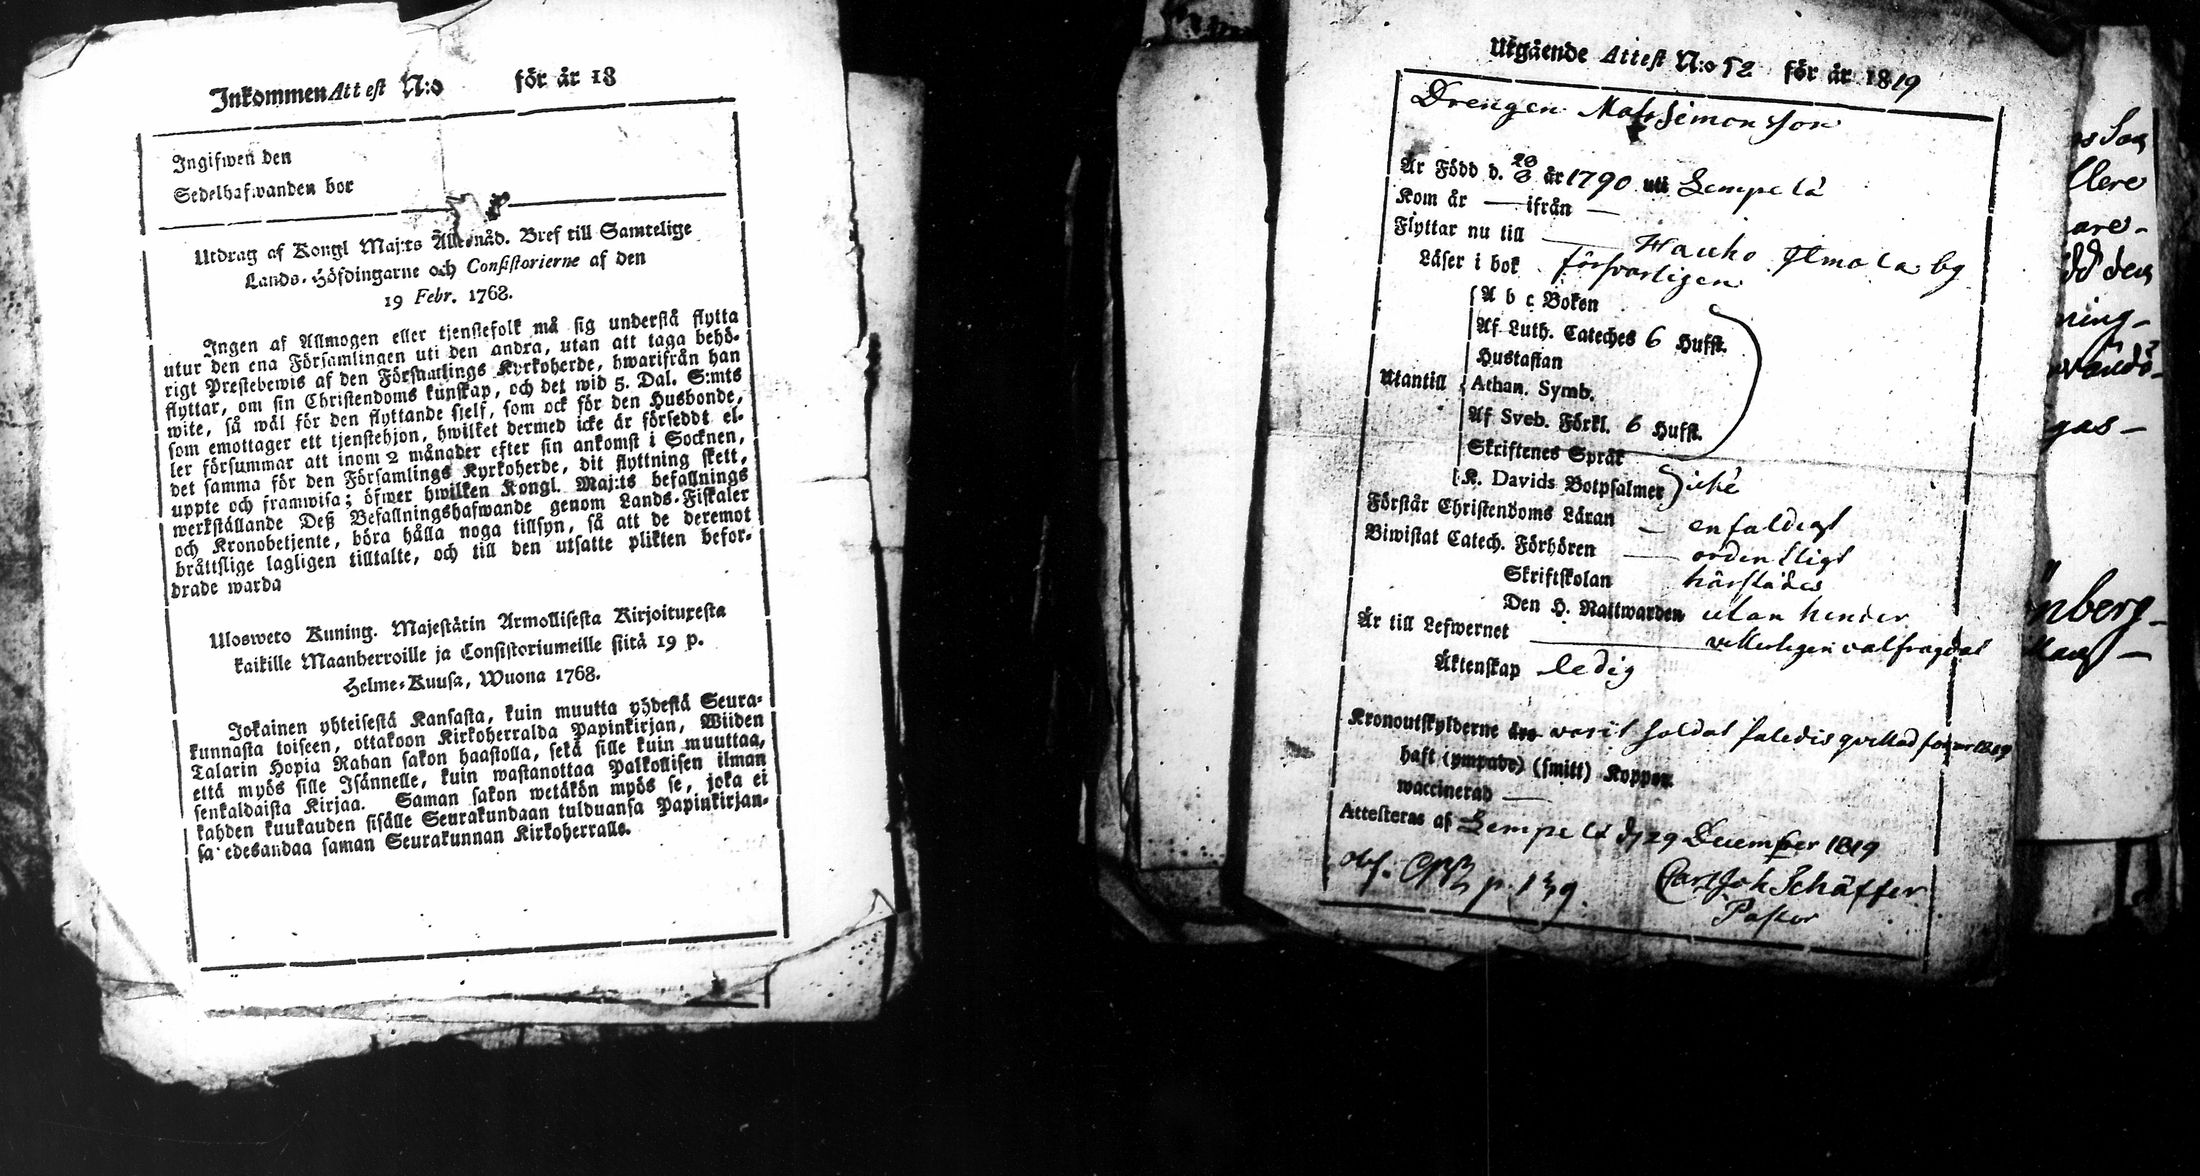 Inkommen Attest N:o för år 18
Ingifwen den
Sedelhafwanden bor
Utdrag af Kongl Maj:ts Allernåd. Bref till Samtelige
Lands-Höfdingarne och Consistorierne af den
19 Febr. 1768.
Ingen af Allmogen eller tjenstefolk må sig understå flytta
utur den ena Församlingen uti den andra, utan att taga behö-
rigt Prestebewis af den Församlings Kyrkoherde, hwarifrån han
flyttar, om sin Christendoms kunskap, och det wid 5. Dal. S:mts
wite, så wäl för den flyttande sjelf, som ock för den Husbonde,
som emottager ett tjenstehjon, hwilket dermed icke är försedt el-
ler försummar att inom 2 månader efter sin ankomst i Socknen,
det samma för den Församlings Kyrkoherde, dit flyttning skett,
uppte och framwisa; öfwer hwilken Kongl. Maj:ts befallnings
werkställande Deß Befallningshafwande genom Lands-Fiskaler
och Kronobetjente, böra hålla noga tillsyn, så att de deremot
bråttslige lagligen tilltalte, och till den utsatte plikten befor-
drade warda
Ulosweto Kuning. Majestätin Armollisesta Kirjoituxesta
kaikille Maanherroille ja Consistoriumeille siitä 19 p.
Helme-Kuusa, Wuona 1768.
Jokainen yhteisestä Kansasta, kuin muutta yhdestä Seura-
kunnasta toiseen, ottakoon Kirkoherralda Papinkirjan, Wiiden
Talarin Hopia Rahan sakon haastolla, sekä sille kuin muuttaa,
että myös sille Isännelle, kuin wastanottaa Palkollisen ilman
senkaldaista Kirjaa. Saman sakon wetäkön myös se, joka ei
kahden kuukauden sisälle Seurakundaan tulduansa Papinkirjan-
sa edesandaa saman Seurakunnan Kirkoherralle.
Utgående Attest N:o 52 för år 1819
Drengen Mats Simonsson
Är Född d. år 1790 uti Lempelä
Kom år — ifrån —
Flyttar nu till — Hauho by
Läser i bok försvarligen
A b c Boken
Af Luth. Cateches 6 Hufst.
Hustaflan
Utantill Athan. Symb.
Af Sveb. Förkl. 6 Hufst.
Skriftenes Språk
K. Davids Botpsalmer icke
Förstår Christendoms Läran — enfaldigt
Biwistat Catech. Förhören — ordentligt
Skriftskolan härstädes
Den H. Nattwarden utan hinder
Är till Lefwernet — välfrägdat
Äktenskap ledig
Kronoutskylderne äro varit soldat 1819
haft (ympade) (smitt) Koppor
waccinerad —
Attesteras af Lempelä d 29 December 1819
p. 139. Carl Joh Schäffer
Pastor